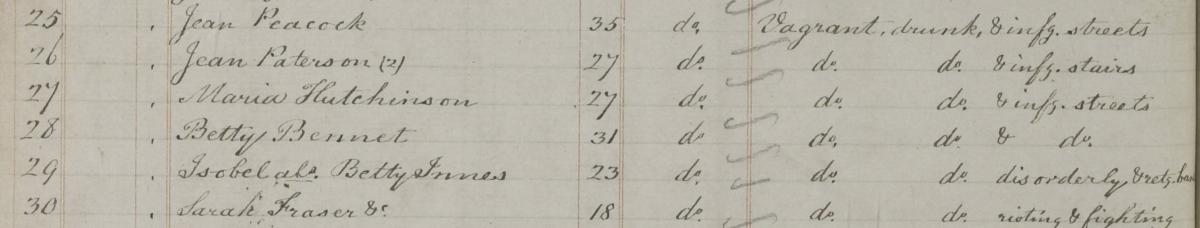 25 Jean Peacock 35 do. Vagrant, drunk, & infg. streets
26 Jean Paterson (2) 27 do. do. do. & infg. stairs
27 Maria Hutchinson 27 do. do. do. & infg. streets
28 Betty Bennet 31 do do. do. & do.
29 Isobel als. Betty Innes 23 do. do. do. disorderly & retg.
30 Sarah Fraser &c 18 do. do. do. rioting & fighting